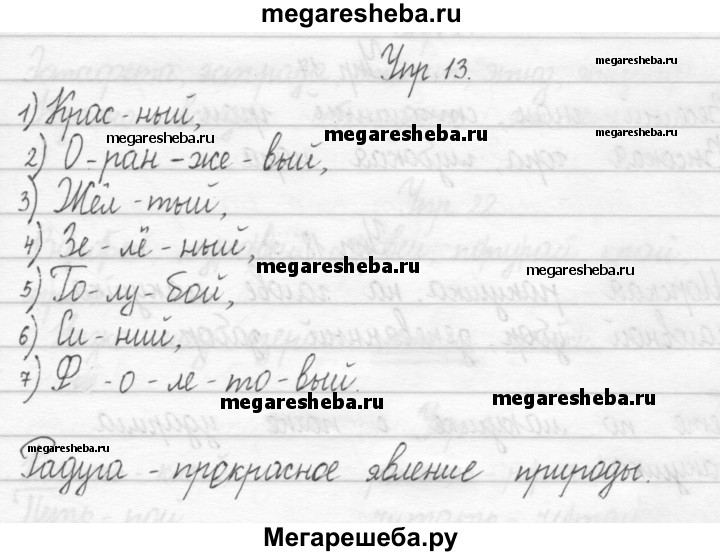 megaresheba.ru
Упр 13.
megaresheba.ru
1) Крас - ный,
megaresheba.ru
megaresheba.ru
2) О - ран - же - вый,
3) Жёл - тый,
4) Зе - лё - ный,
megaresheba.ru
megaresheba.ru
5) Го - лу - бой,
6) Си - ний,
7) Ф - о - ле - то - вый.
megaresheba.ru
megaresheba.ru
megaresheba.ru
Радуга - прекрасное явление природы.
Мегарешеба.ру